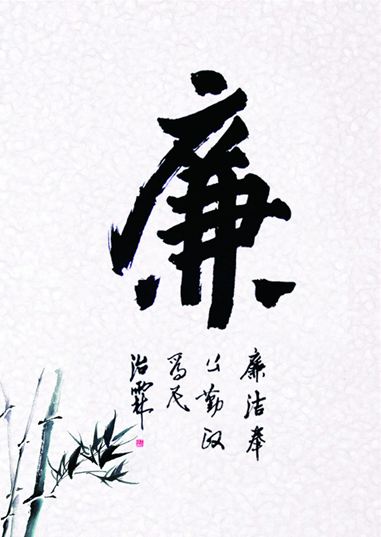 廉
廉洁奉
公勤政
为民
治霖